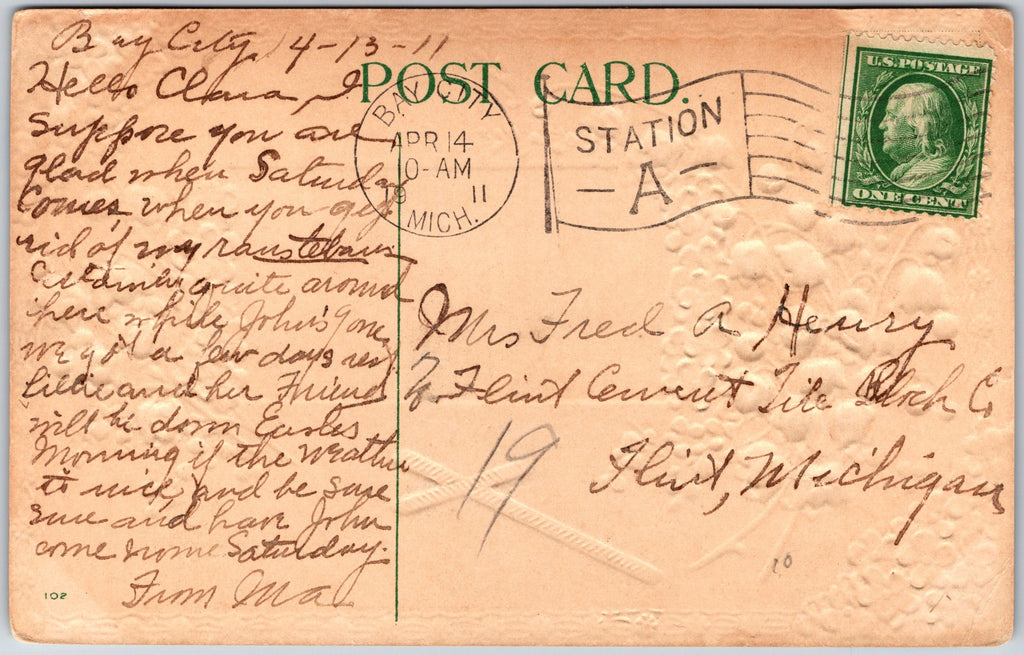 Bay City, 4-13-11
Hello Clara, I
suppose you are
glad when Saturday
Comes, when you get
rid of my
quite around
here while John's gone
we got a few days rest
Lillie and her Friend
will be down Easter
Morning if the Weather
is nice, and be sure
sure and have John
come home Saturday.
From Ma
102
POST CARD.
BAY CITY
APR 14
0-AM
9 11
MICH.
STATION
A
U.S. POSTAGE
ONE CENT
Mrs Fred A Henry
% Flint Cement Tile Block Co
Flint, Michigan
19
10